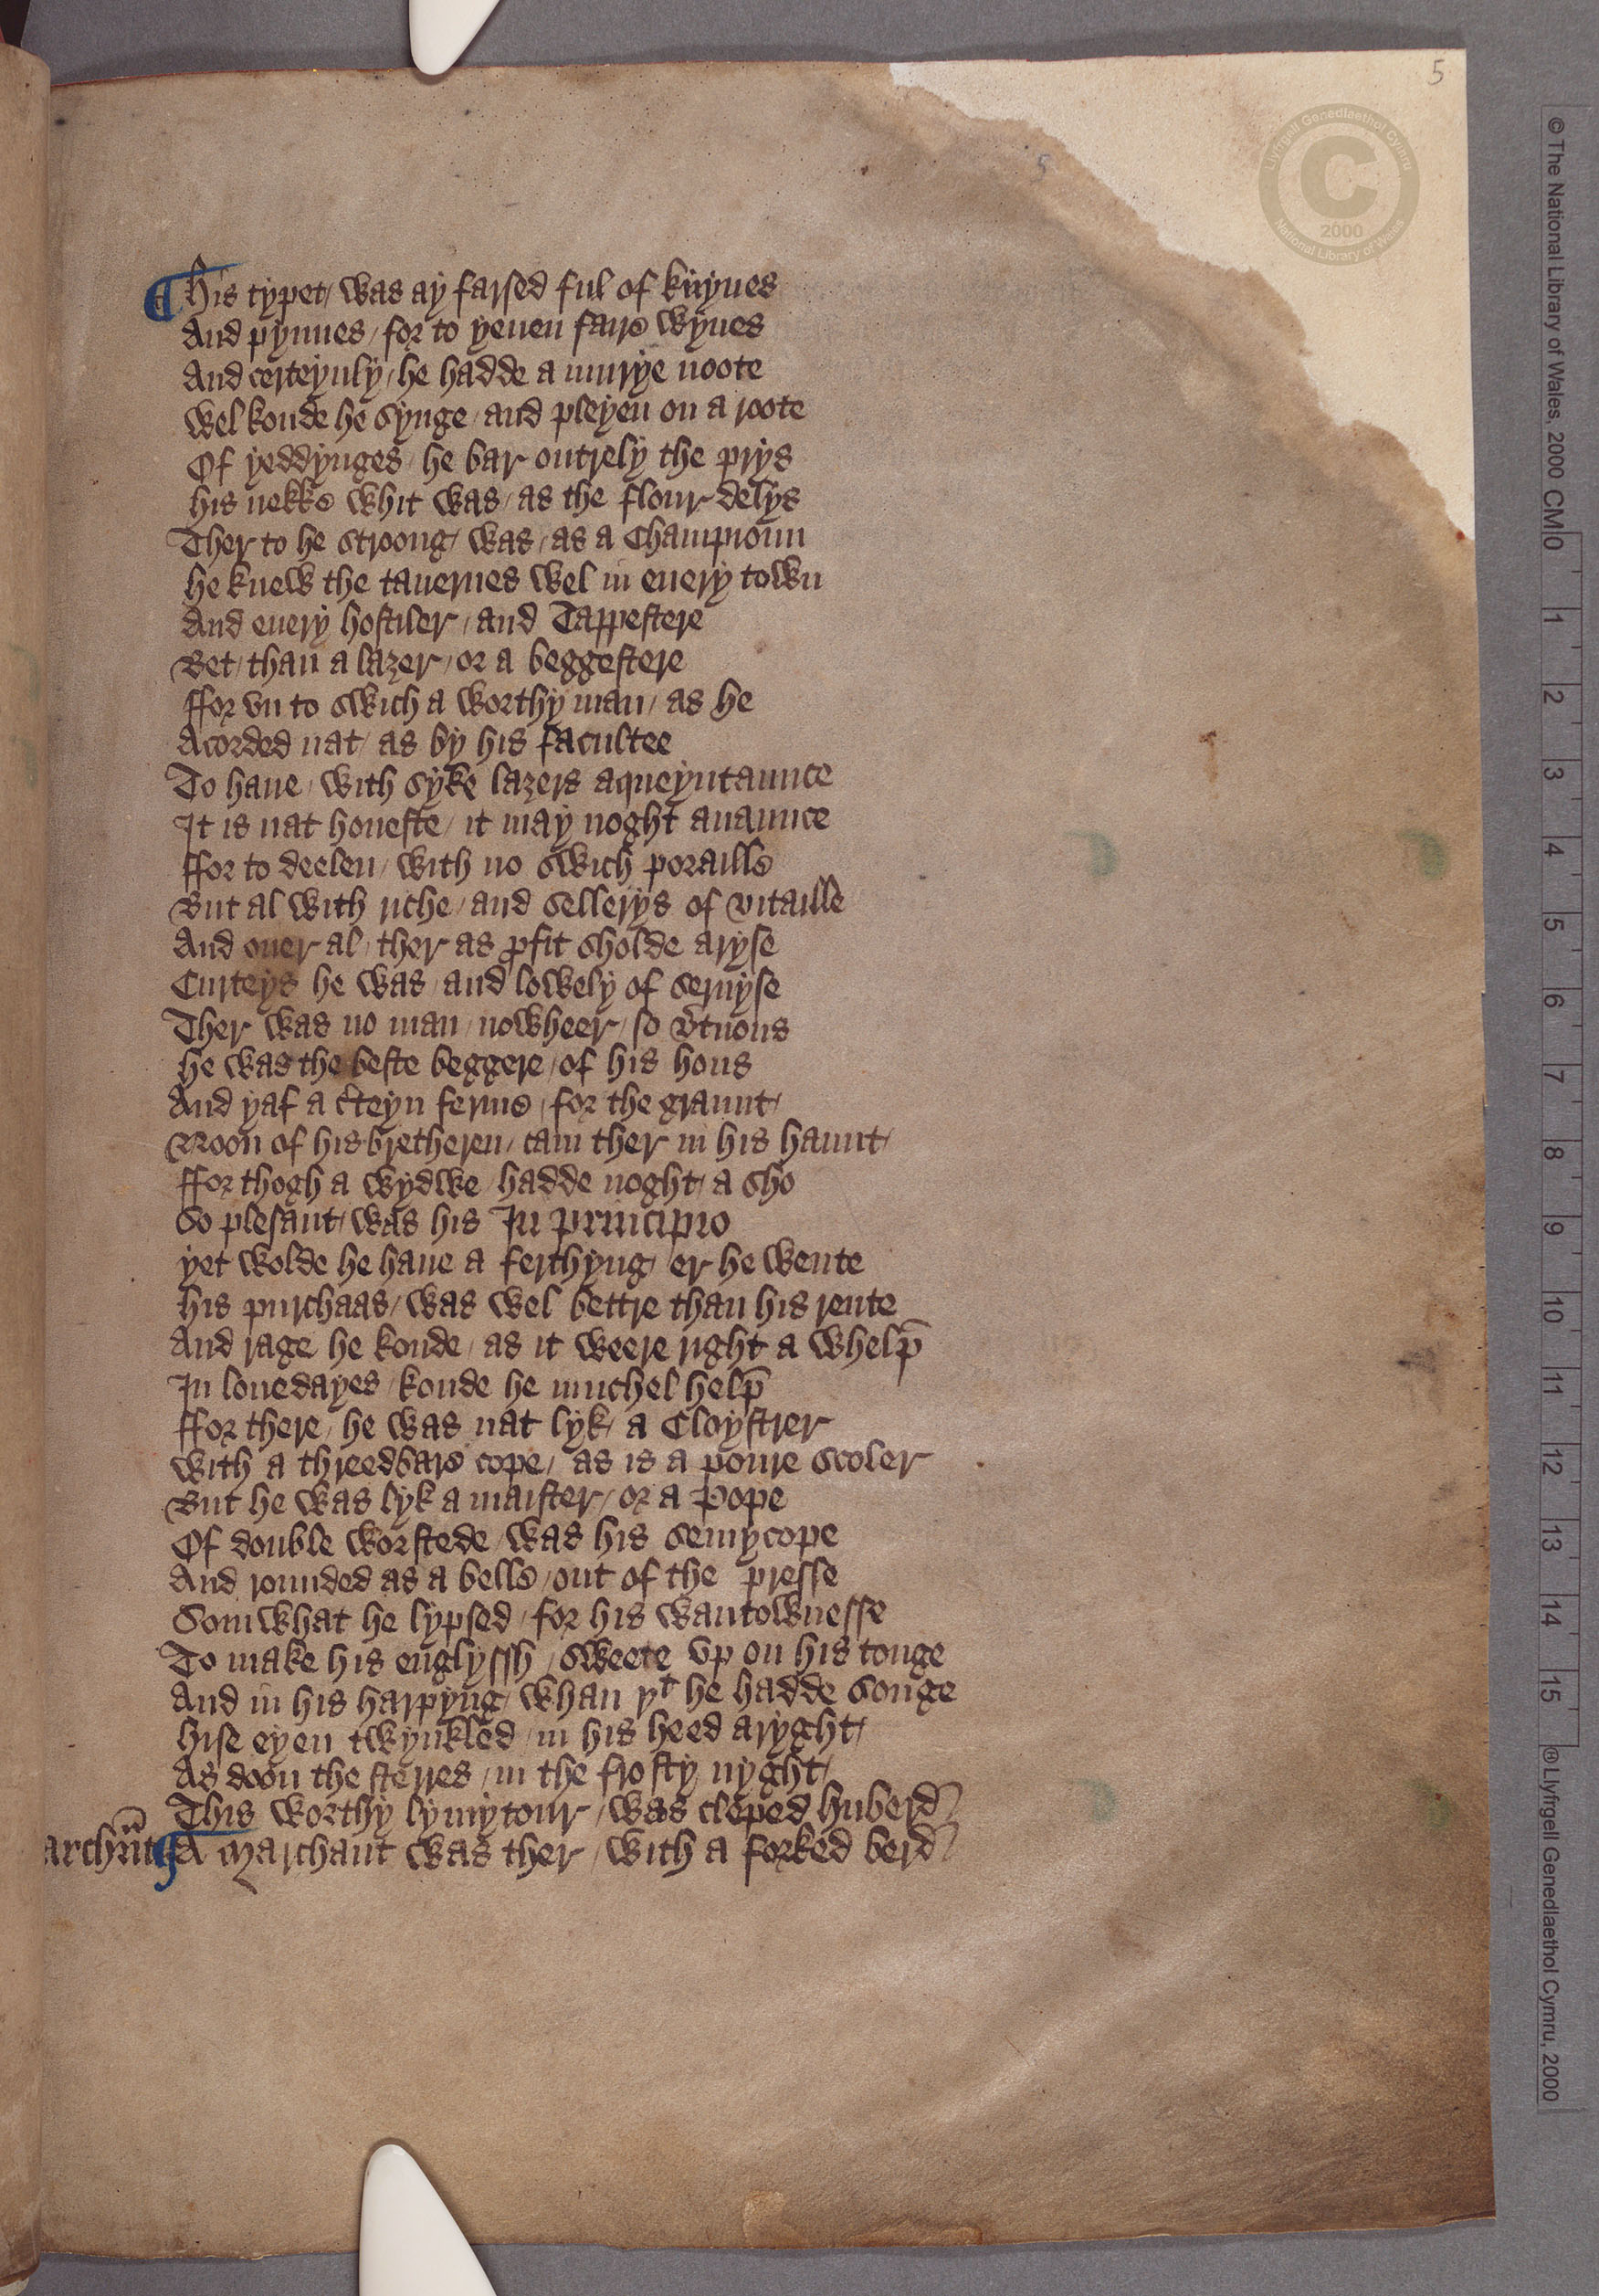 5
5
His typet / was ay farsed ful of knyues
And pynnes / for to yeuen faire wyues
And certeynly / he hadde a murye noote
Wel koude he synge / and pleyen on a roote
Of yeddynges / he bar outrely the prys
His nekke whit was / as the flour delys
Ther to he stroong / was / as a Champioun
He knew the tauernes wel in euery town
And euery hostiler / and Tappestere
Bet / than a lazer / or a beggestere
ffor vn to swich a worthy man / as he
Acorded nat / as by his facultee
To haue / with syke lazers aqueyntaunce
It is nat honeste / it may noght auaunce
ffor to deelen / with no swich poraille
But al with riche / and sellerys of vitaille
And ouer al / ther as ꝓfit sholde aryse
Curteys he was / and lowely of seruyse
Ther was no man / nowheer / so v̾tuous
He was the beste beggere / of his hous
And yaf a c̾teyn ferme / for the graunt /
Noon of his bretheren / cam ther in his haunt /
ffor thogh a wydwe / hadde noght / a sho
So plesant / was his In principio
Yet wolde he haue a ferthyng / er he wente
His purchaas / was wel bettre than his rente
And rage he koude / as it weere right a whelp̄
In louedayes / koude he muchel help̄
ffor there / he was nat lyk / a Cloystrer
With a threedbare cope / as is a poure scoler
But he was lyk a maister / or a Pope
Of double worstede / was his semycope
And rounded as a belle / out of the presse
Somwhat he lypsed / for his wantownesse
To make his englyssh / sweete vp on his tonge
And in his harpyng / whan yͭ he hadde songe
Hise eyen twynkled / in his heed aryght /
As doon the sterres / in the frosty nyght /
This worthy lymytour / was cleped huberd
archn̄t ¶ A Marchant was ther / with a forked berd
© The National Library of Wales, 2000 CM 0 1 2 3 4 5 6 7 8 9 10 11 12 13 14 15 ® Llyfrgell Genedlaethol Cymru, 2000
Llyfrgell Genedlaethol Cymru
C
2000
National Library of Wales